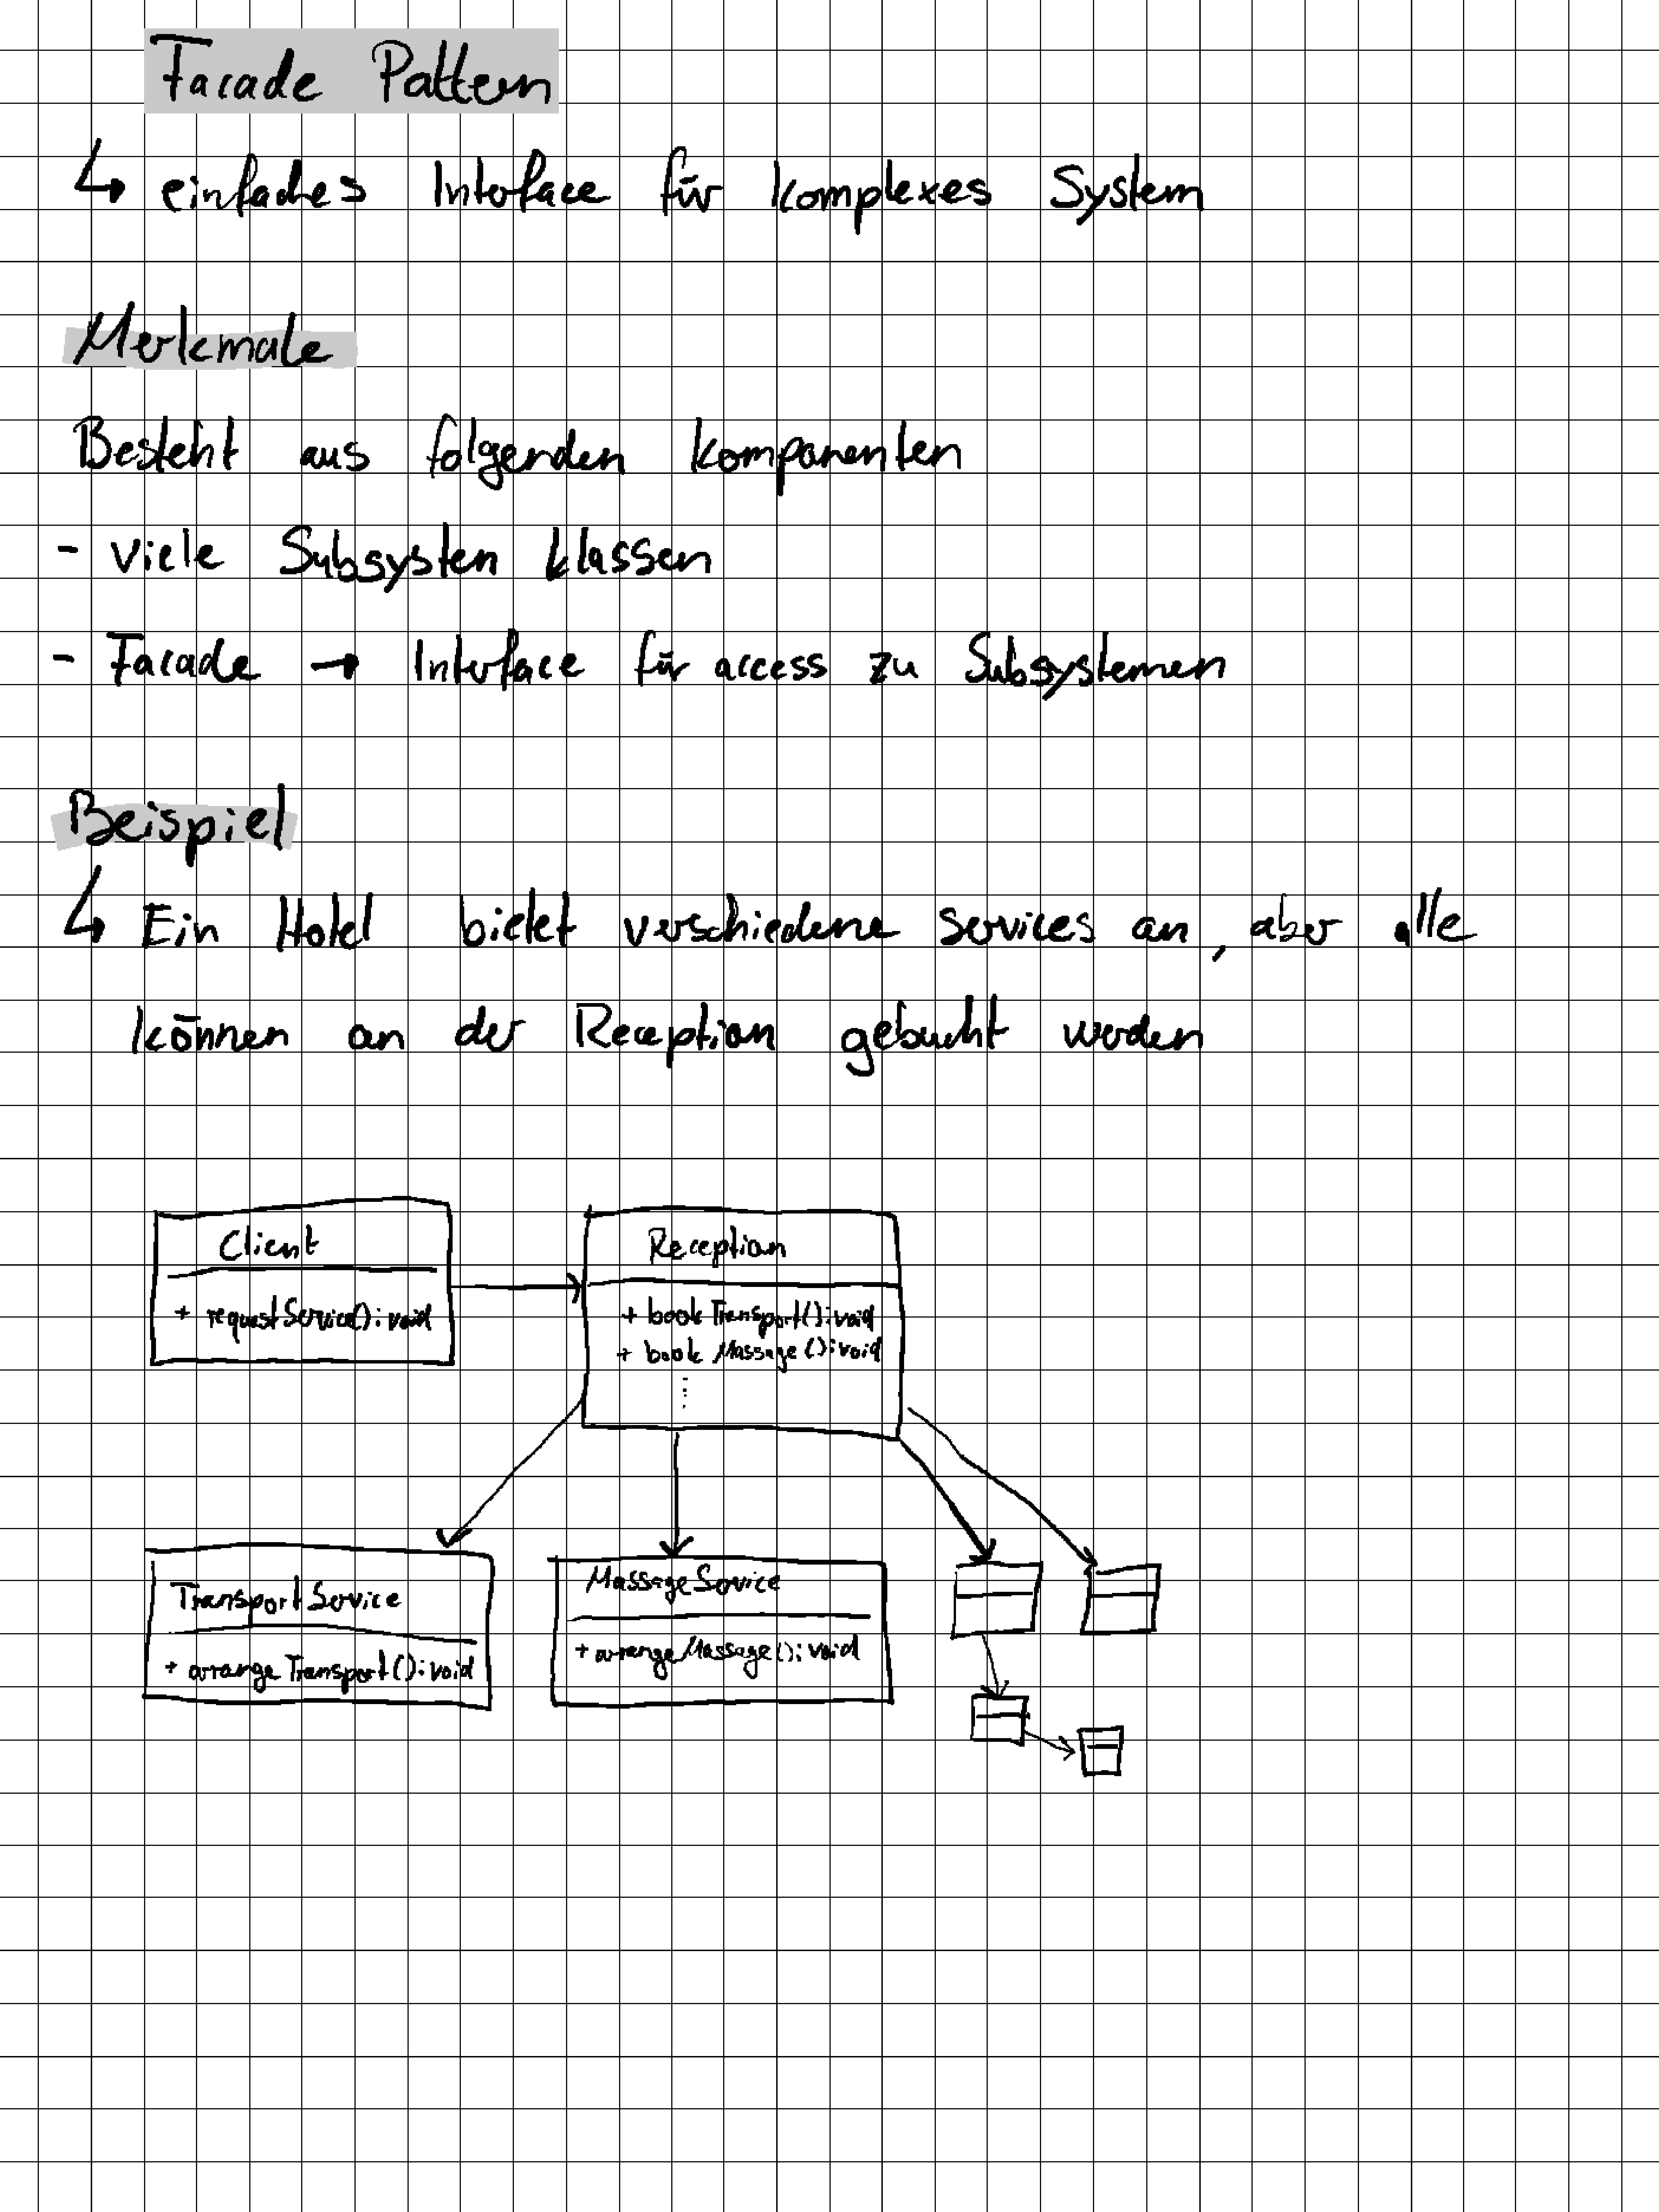 Facade Pattern
↳ einfaches Interface für komplexes System
Merkmale
Besteht aus folgenden Komponenten
- viele Subsysten klassen
- Facade → Interface für access zu Subsystemen
Beispiel
↳ Ein Hotel bietet verschiedene Services an, aber alle
können an der Reception gebucht werden
Client
+ requestService(): void
Reception
+ bookTransport(): void
+ bookMassage(): void
⋮
TransportService
+ arrangeTransport(): void
MassageService
+ arrangeMassage(): void